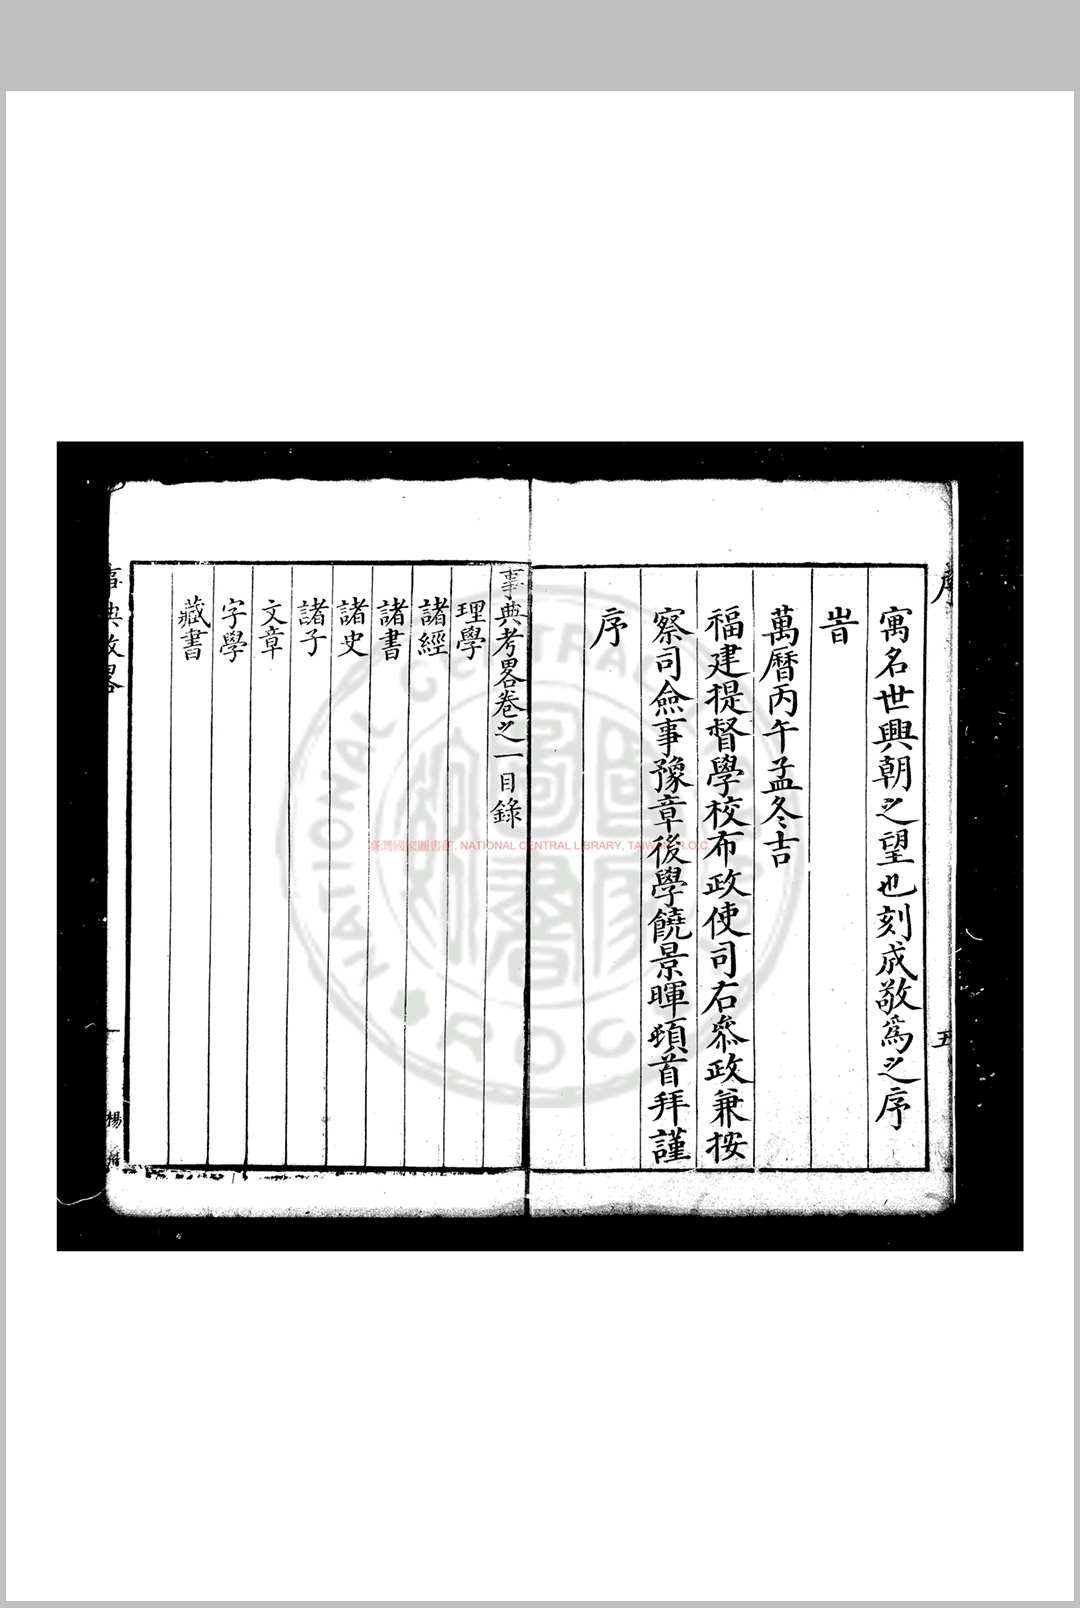 寓名世興朝之望也刻成敬爲之序
旹
萬曆丙午孟冬吉
福建提督學校布政使司右叅政兼按
察司僉事豫章後學饒景暉頓首拜謹
序
五
事典考畧卷之一目錄
理學
諸經
諸書
諸史
諸子
文章
字學
藏書
一
楊
臺灣國家圖書館, NATIONAL CENTRAL LIBRARY, TAIWAN, R.O.C
NATIONAL CENTRAL LIBRARY